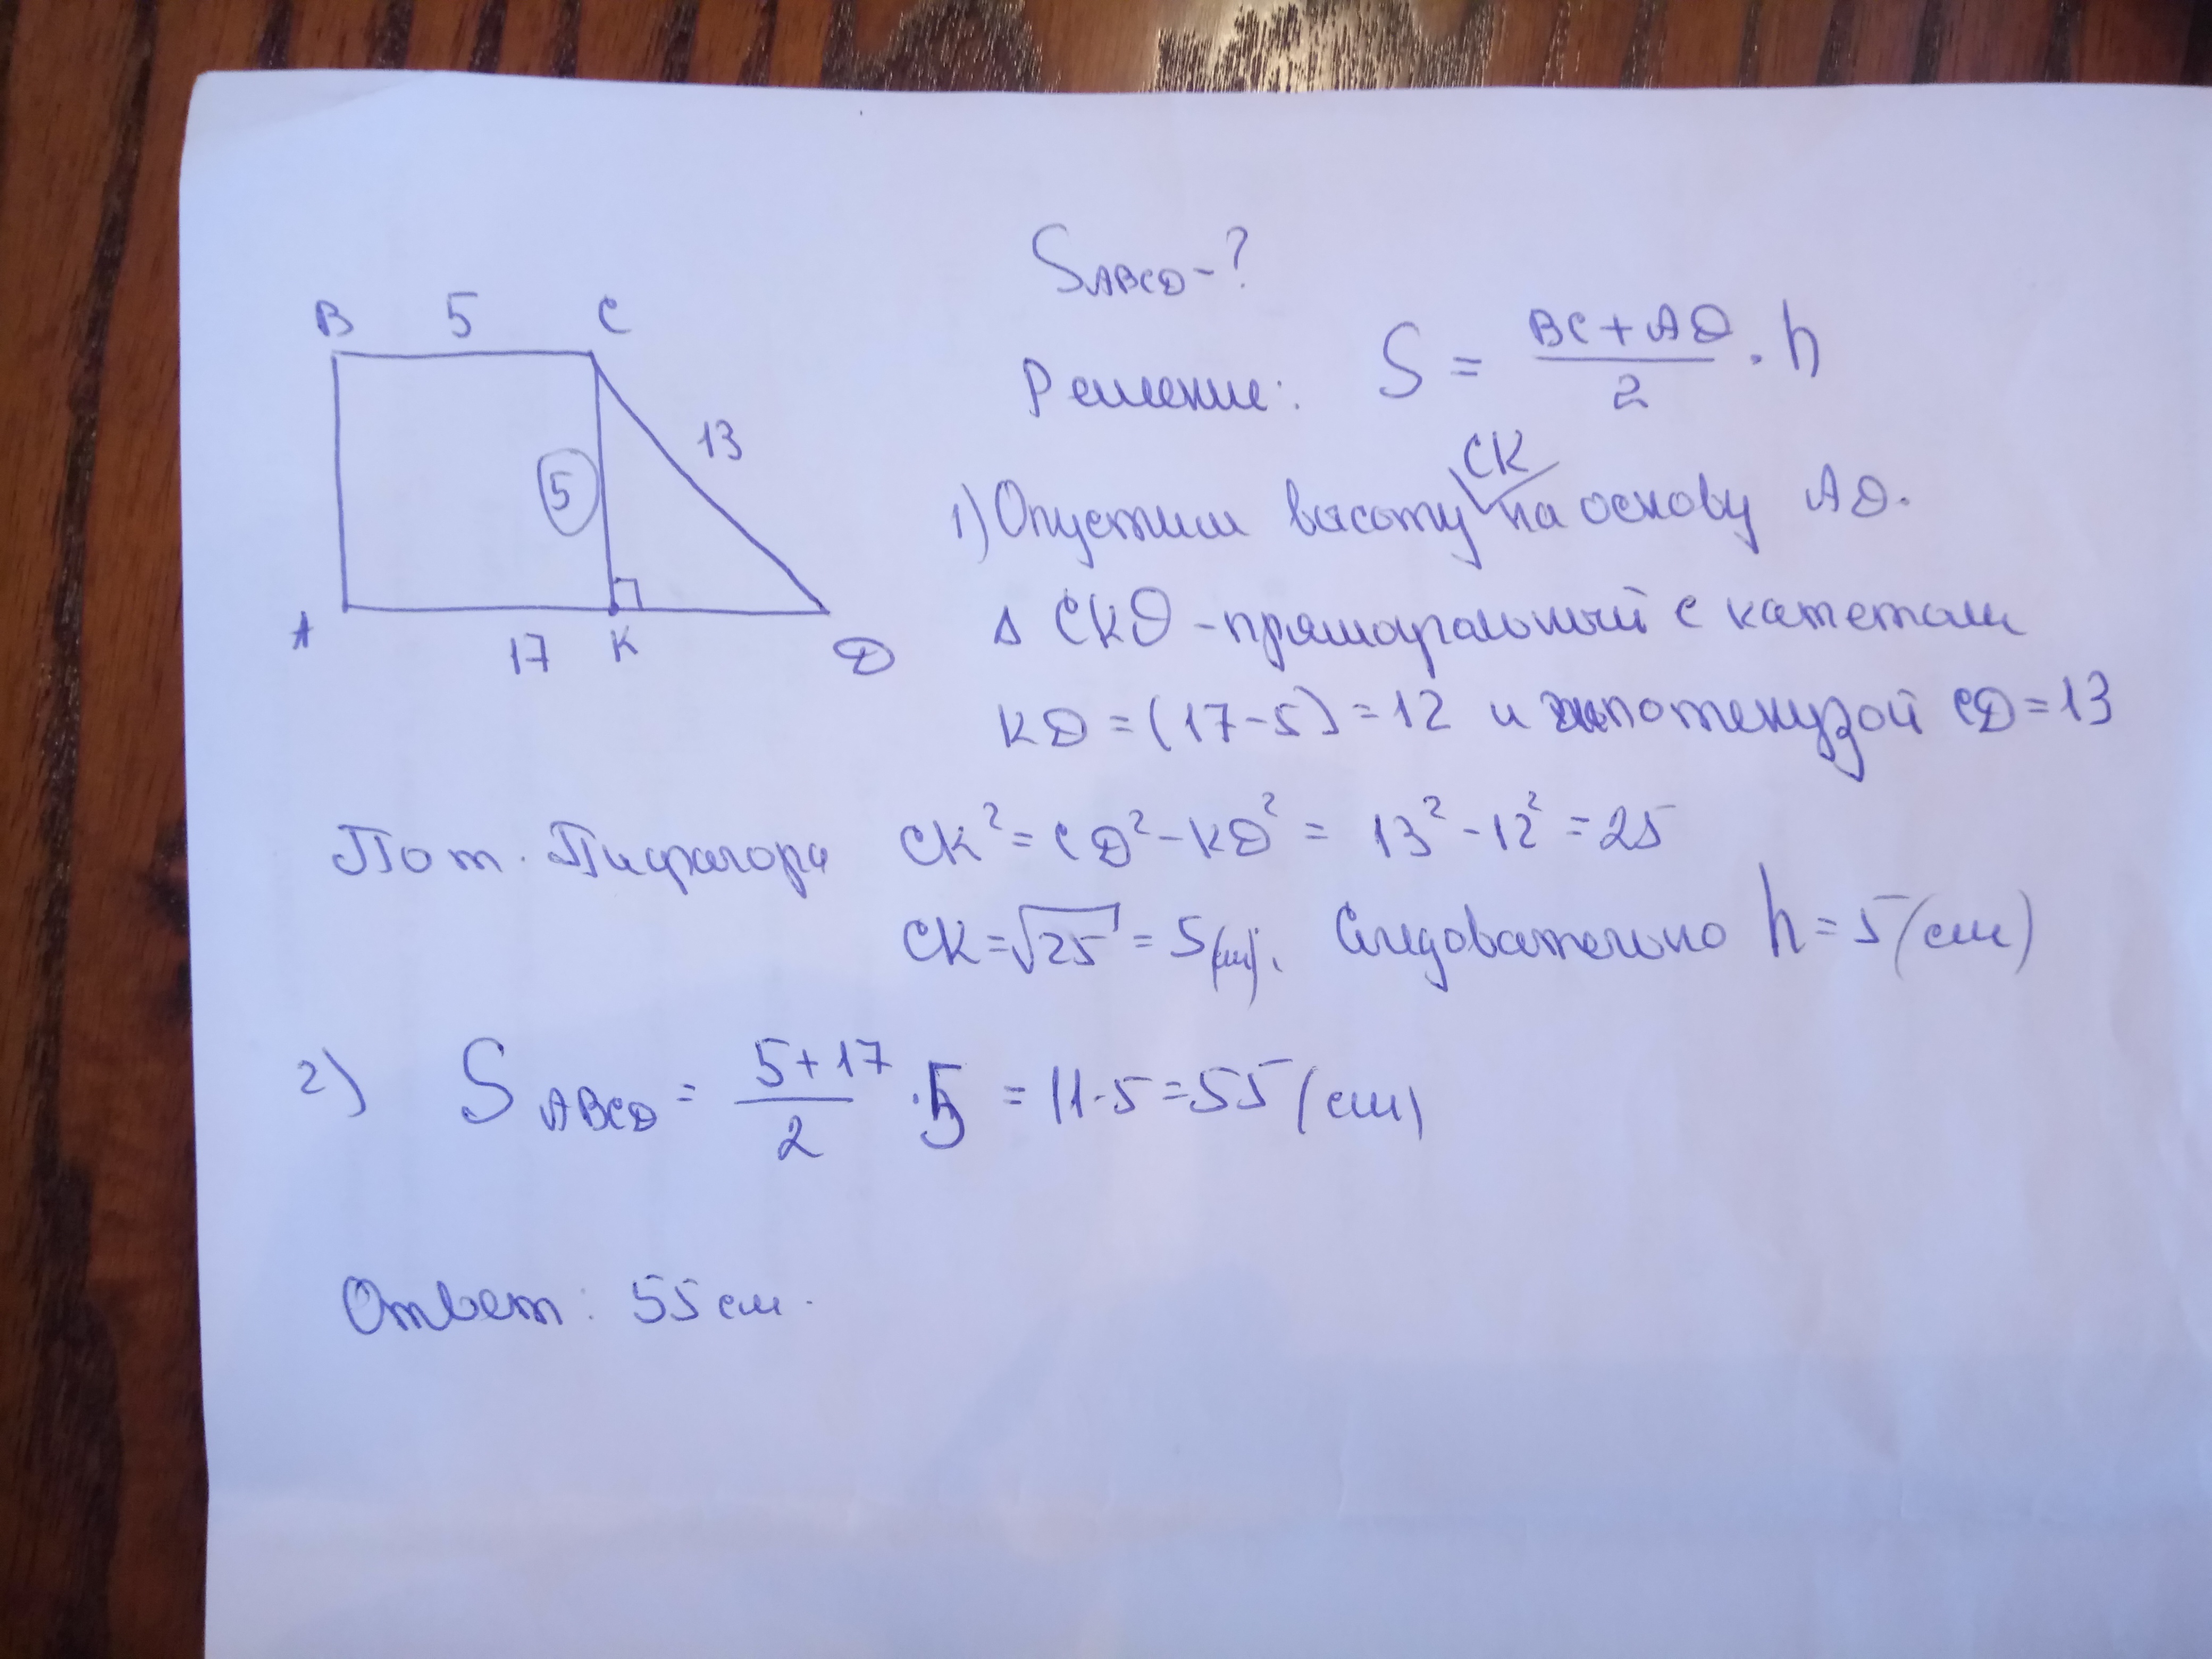 S ABCD - ?
B 5 C
Решение: S = (BC + AD)/2 · h
13
5
A 17 K D
1) Опустим высоту CK на основу AD.
Δ CKD - прямоугольный с катетом
KD = (17-5) = 12 и гипотенузой CD = 13
По т. Пифагора CK² = CD² - KD² = 13² - 12² = 25
CK = √25 = 5 (см). Следовательно h = 5 (см)
2) S ABCD = (5+17)/2 · 5 = 11·5 = 55 (см)
Ответ: 55 см.